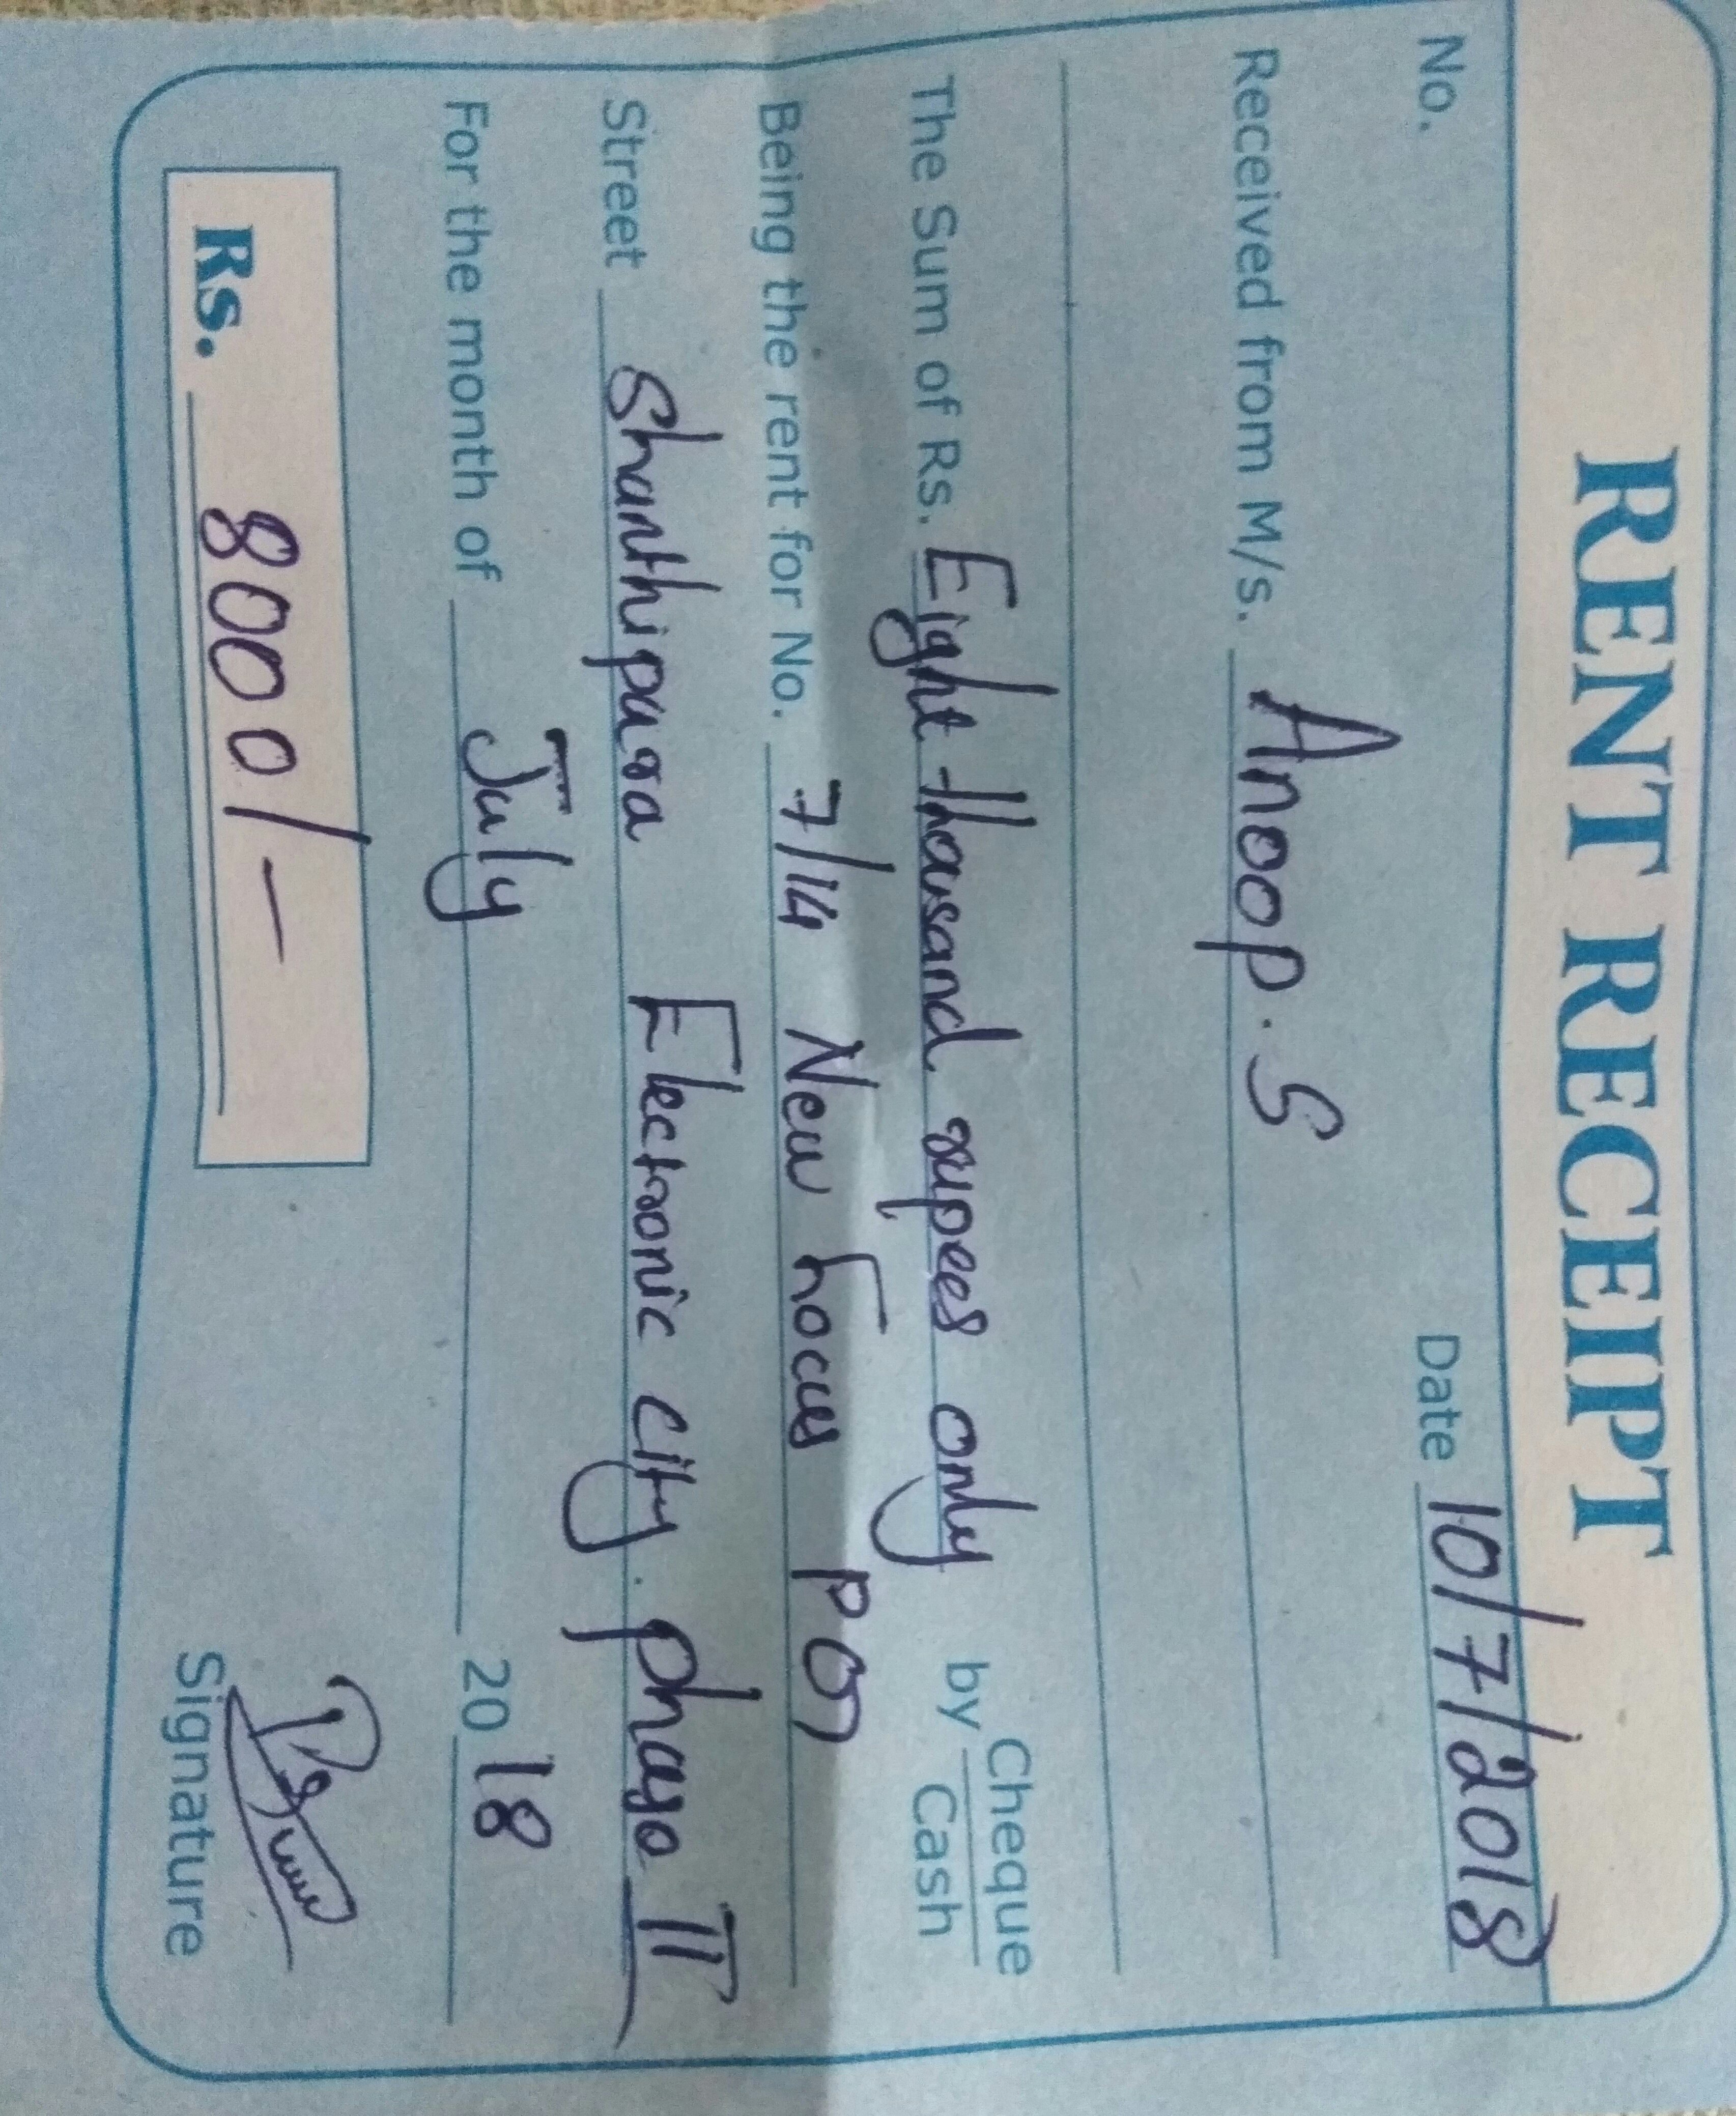 RENT RECEIPT
No. Date 10/7/2018
Received from M/s. Anoop. S
The Sum of Rs. Eight thousand rupees only by Cheque / Cash
Being the rent for No. 7/14 New Focus PG
Street Shanthipura Electronic city. phase II
For the month of July 2018
Rs. 8000/-
Signature